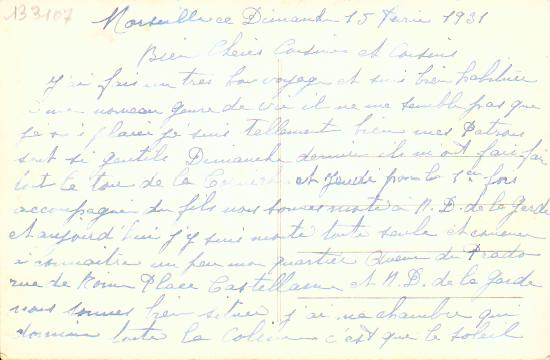 133107
Marseille ce Dimanche 15 Février 1931
Bien Chères Cousines et Cousins
J'ai fais un très bon voyage et suis bien habituée
à mon nouveau genre de vie il ne me semble pas que
je suis placé je suis tellement bien mes Patrons
sont si gentils Dimanche dernier ils m'ont fait fai
le tour de la et Jeudi pour la 1ère fois
accompagnée du fils nous sommes monté à N. D. de la Garde
et aujourd'hui j'y suis monté toute seule et commence
à connaître un peu mon quartier Avenue du Prado
rue de Rome Place Castellane et N. D. de la Garde
nous sommes bien situer j'ai ma chambre qui
domine toute la Colline c'est que le soleil